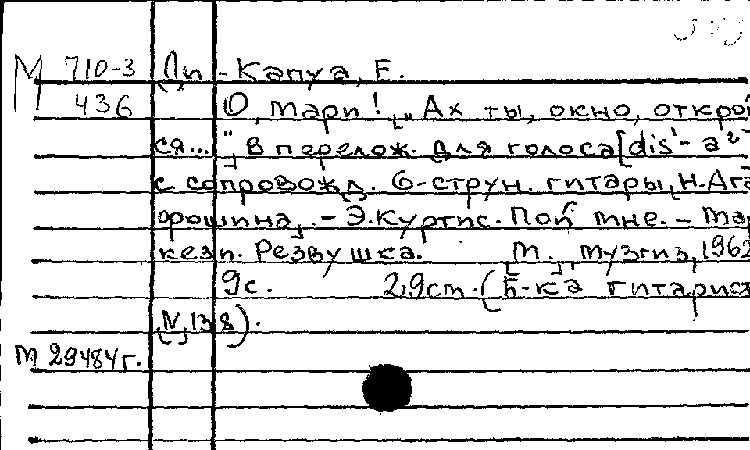 М 710-3 Ди-Капуа, Е.
436 О, Мари! [„Ах ты, окно, открой
ся...“], в перелож. для голоса [dis¹-a²]
с сопровожд. 6-струн. гитары [Н. Ага
фошина]. - Э. Куртис. Пой мне. - Мар
кези. Резвушка. [М.], Музгиз, 1962
9с. 29см. (Б-ка гитарист
[N 138]).
М 29484г.